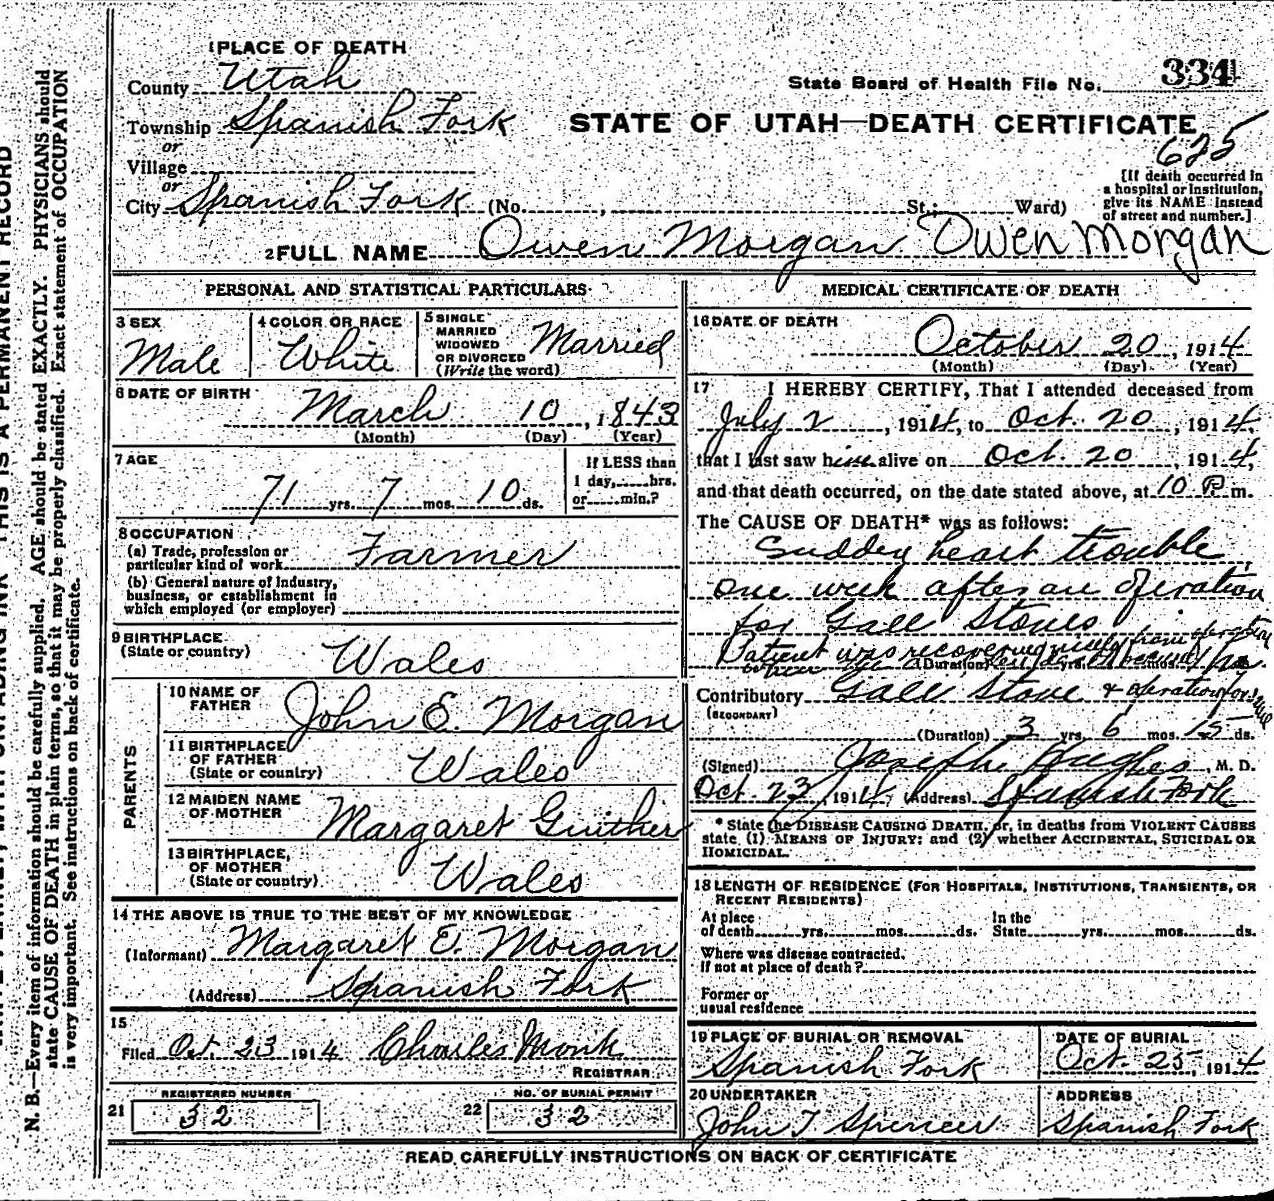 WRITE PLAINLY, WITH UNFADING INK—THIS IS A PERMANENT RECORD
N. B.—Every item of information should be carefully supplied. AGE should be stated EXACTLY. PHYSICIANS should
state CAUSE OF DEATH in plain terms, so that it may be properly classified. Exact statement of OCCUPATION
is very important. See instructions on back of certificate.
1 PLACE OF DEATH
County Utah
State Board of Health File No. 334
Township Spanish Fork
STATE OF UTAH—DEATH CERTIFICATE
or
625
Village
or
City Spanish Fork (No. , St.; Ward)
[If death occurred in
a hospital or institution,
give its NAME instead
of street and number.]
2 FULL NAME Owen Morgan Owen Morgan
PERSONAL AND STATISTICAL PARTICULARS
3 SEX
Male
4 COLOR OR RACE
White
5 SINGLE
MARRIED
WIDOWED
OR DIVORCED
(Write the word)
Married
6 DATE OF BIRTH
March 10, 1843
(Month) (Day) (Year)
7 AGE
71 yrs. 7 mos. 10 ds.
If LESS than
1 day, hrs.
or min.?
8 OCCUPATION
(a) Trade, profession or
particular kind of work Farmer
(b) General nature of Industry,
business, or establishment in
which employed (or employer)
9 BIRTHPLACE
(State or country)
Wales
PARENTS
10 NAME OF
FATHER
John E. Morgan
11 BIRTHPLACE
OF FATHER
(State or country)
Wales
12 MAIDEN NAME
OF MOTHER
Margaret Ginther
13 BIRTHPLACE,
OF MOTHER
(State or country)
Wales
14 THE ABOVE IS TRUE TO THE BEST OF MY KNOWLEDGE
(Informant) Margaret E. Morgan
(Address) Spanish Fork
15
Filed Oct. 23 1914 Charles Monk
REGISTRAR
REGISTERED NUMBER
21 32
NO. OF BURIAL PERMIT
22 32
MEDICAL CERTIFICATE OF DEATH
16 DATE OF DEATH
October 20, 1914
(Month) (Day) (Year)
17 I HEREBY CERTIFY, That I attended deceased from
July 2, 1914, to Oct. 20, 1914,
that I last saw him alive on Oct. 20, 1914,
and that death occurred, on the date stated above, at 10 P. m.
The CAUSE OF DEATH* was as follows:
Sudden heart trouble
one week after an operation
for Gall Stones
Patient was recovering nicely from operation
(Duration) yrs. mos. ds.
Contributory Gall Stone & operation for same
(SECONDARY)
(Duration) 3 yrs. 6 mos. 15 ds.
(Signed) Joseph Hughes, M. D.
Oct. 23, 1914 (Address) Spanish Fork
* State the DISEASE CAUSING DEATH, or, in deaths from VIOLENT CAUSES
state (1) MEANS OF INJURY; and (2) whether ACCIDENTAL, SUICIDAL OR
HOMICIDAL.
18 LENGTH OF RESIDENCE (FOR HOSPITALS, INSTITUTIONS, TRANSIENTS, OR
RECENT RESIDENTS)
At place
of death yrs. mos. ds.
In the
State yrs. mos. ds.
Where was disease contracted,
If not at place of death?
Former or
usual residence
19 PLACE OF BURIAL OR REMOVAL
Spanish Fork
DATE OF BURIAL
Oct. 25, 1914
20 UNDERTAKER
John T Spencer
ADDRESS
Spanish Fork
READ CAREFULLY INSTRUCTIONS ON BACK OF CERTIFICATE